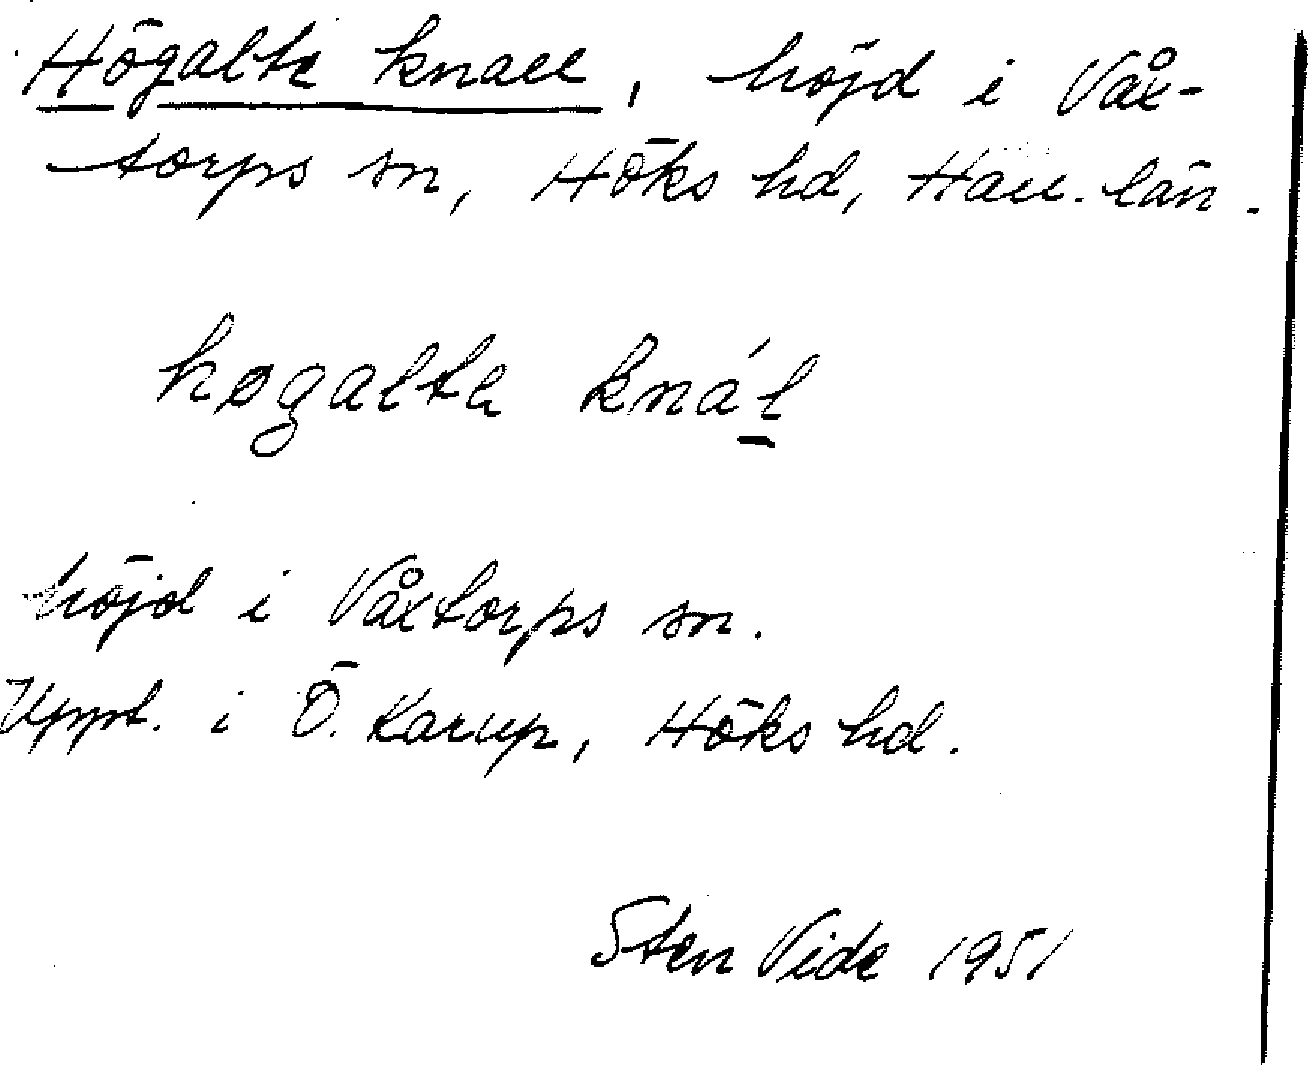 Högalte knall, höjd i Våx-
torps sn, Höks hd, Hall. län.
høgalta knál
höjd i Våxtorps sn.
Uppt. i Ö. Karup, Höks hd.
Sten Vide 1951